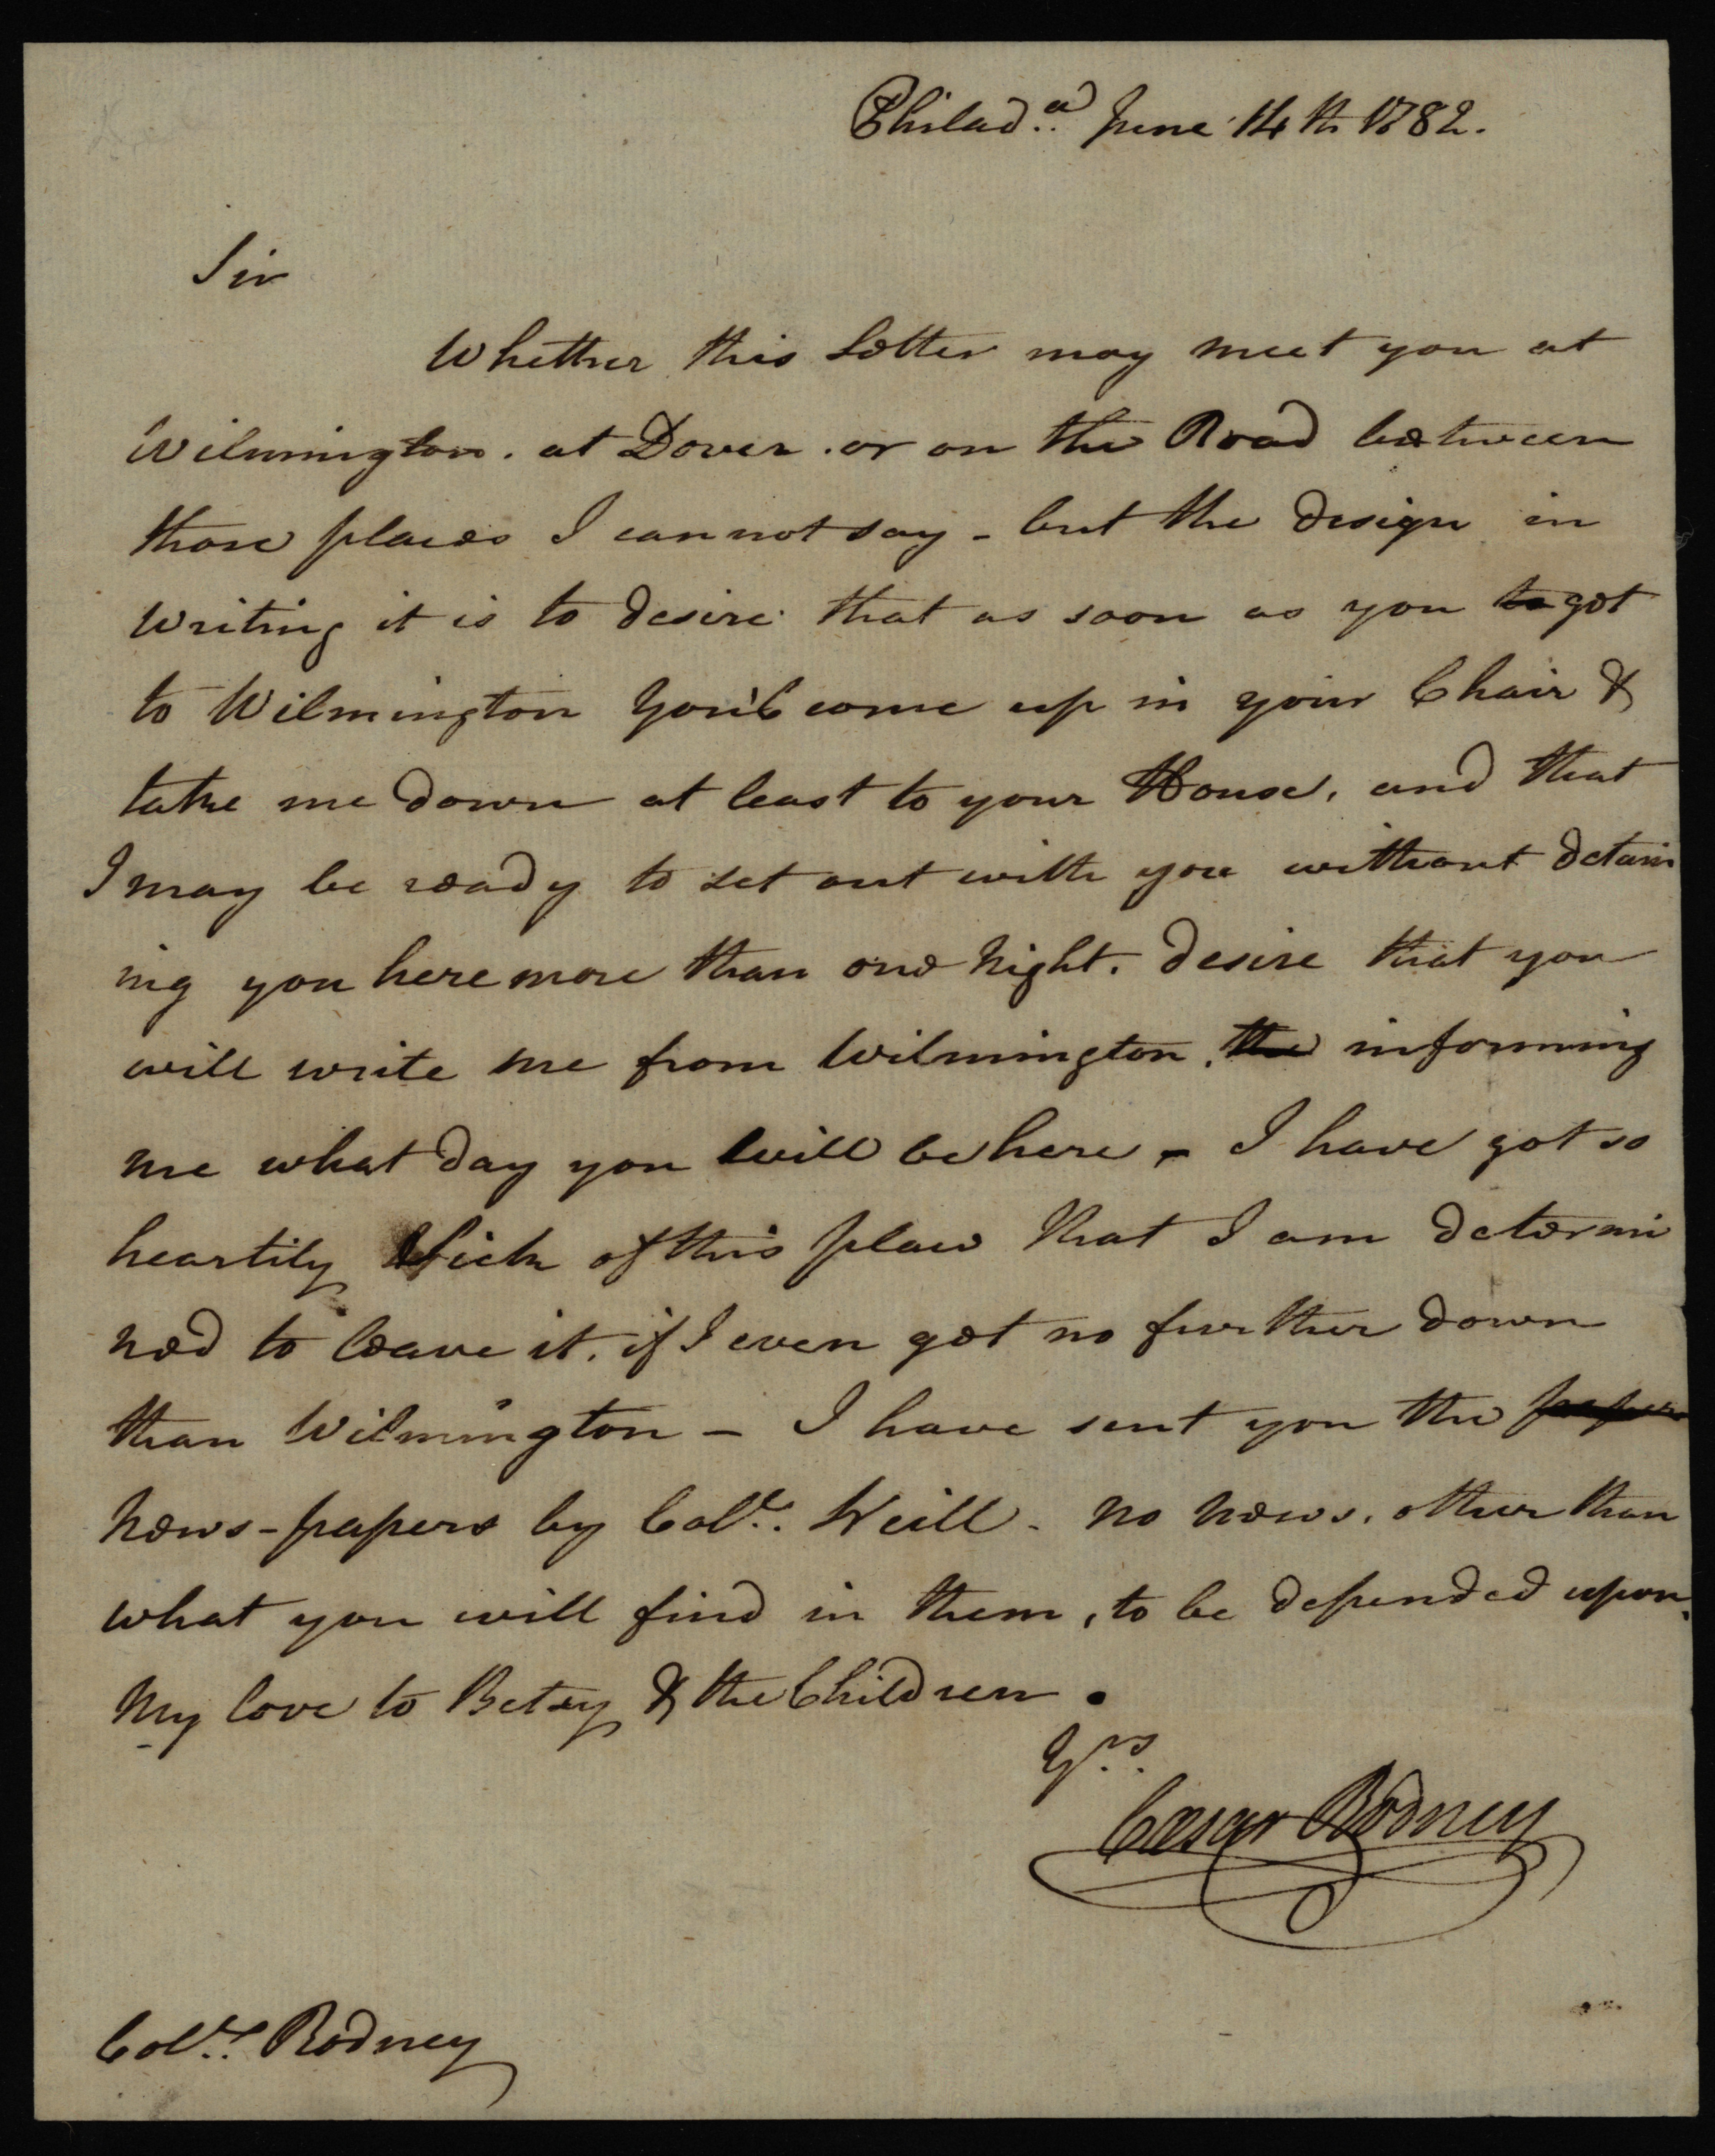 Philad.a June 14th 1782.
Sir
Whether this Letter may meet you at
Wilmington. at Dover. or on the Road between
those places I cannot say - but the design in
writing it is to desire that as soon as you to get
to Wilmington You'l come up in your Chair &
take me down at least to your House, and that
I may be ready to set out with you without detain
ing you here more than one Night. desire that you
will write me from Wilmington, the informing
me what day you will be here - I have got so
heartily Sick of this place that I am determi
ned to leave it. if I even get no further down
than Wilmington - I have sent you the papers
News-papers by Col.l Neill - No News. other than
what you will find in them, to be depended upon.
My love to Betsy & the Children.
Y.rs
Cæsar Rodney
Col.l Rodney